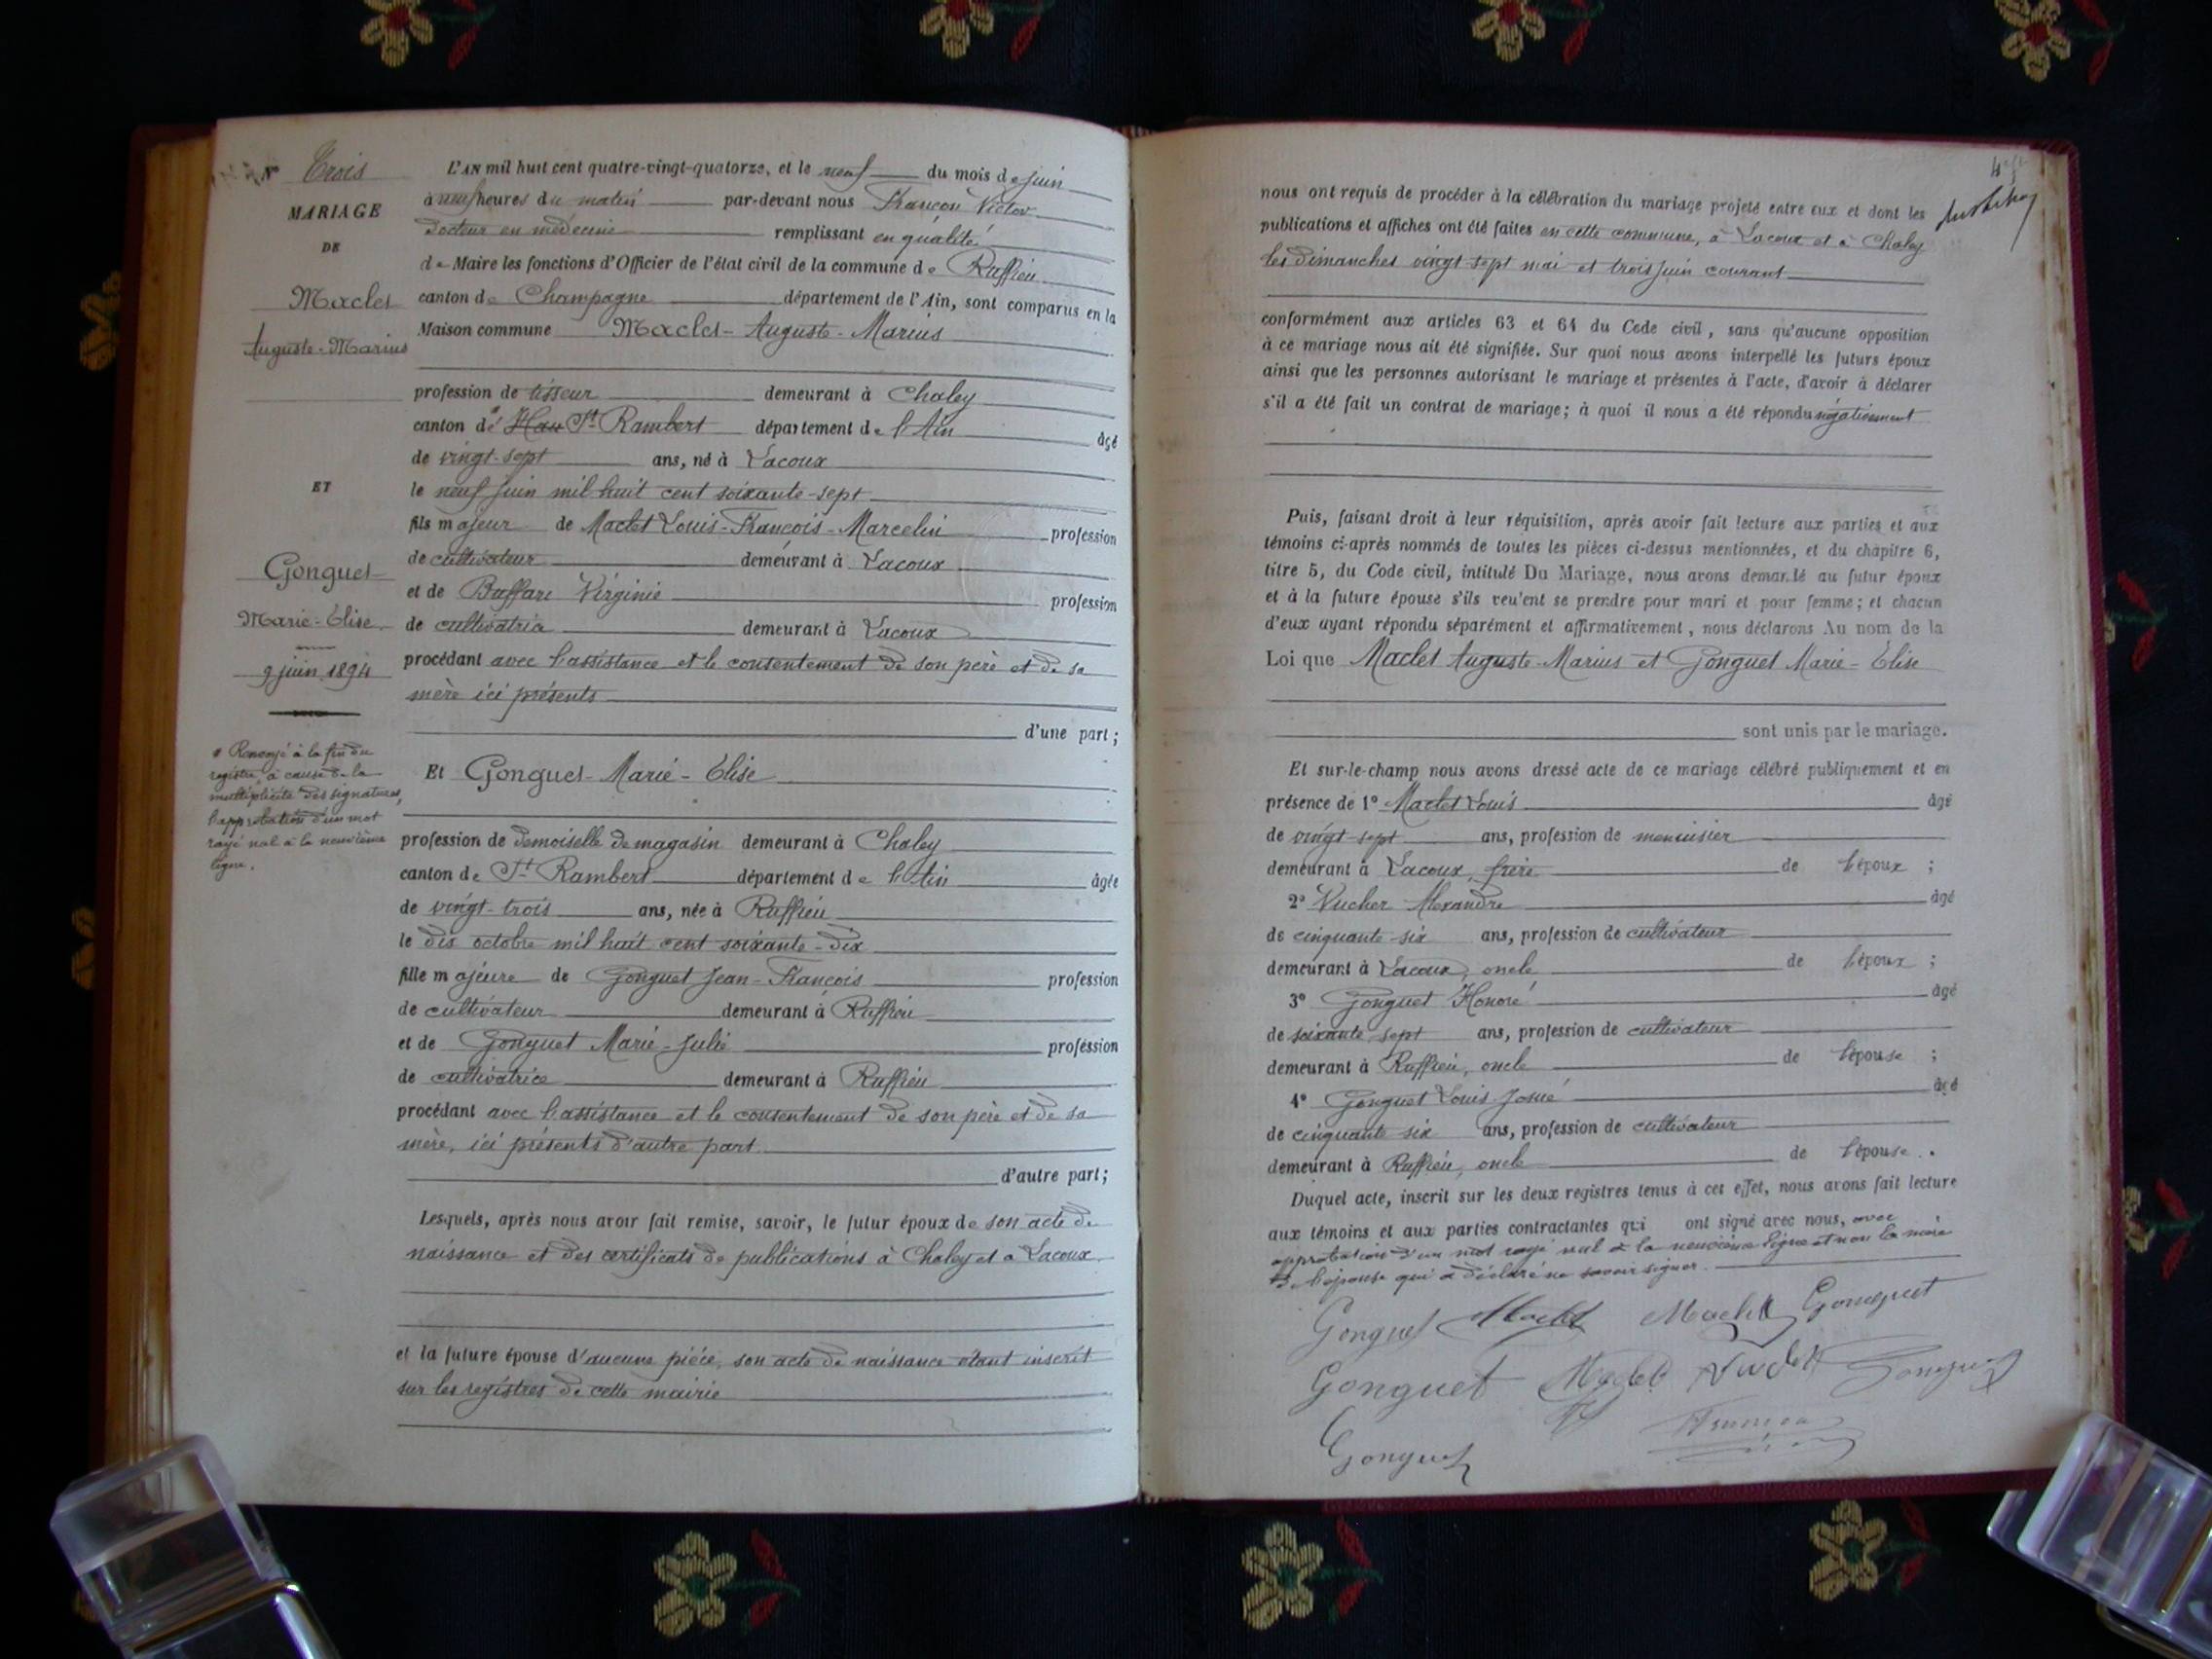 Nº Trois
MARIAGE
DE
Maclet
Auguste-Marius
ET
Gonguet
Marie-Elise
9 juin 1894
à la fin du
registre, à cause de la
multiplicité des signatures,
l'approbation d'un mot
rayé nul à la neuvième
ligne.
L'AN mil huit cent quatre-vingt-quatorze, et le neuf du mois de juin
à neuf heures du matin par-devant nous Françon Victor
docteur en médecine remplissant en qualité
de Maire les fonctions d'Officier de l'état civil de la commune de Ruffieu
canton de Champagne département de l'Ain, sont comparus en la
Maison commune Maclet-Auguste-Marius
profession de tisseur demeurant à Chaley
canton de Hau St Rambert département de l'Ain âgé
de vingt-sept ans, né à Lacoux
le neuf juin mil huit cent soixante-sept
fils majeur de Maclet Louis-François-Marcelin profession
de cultivateur demeurant à Lacoux
et de Buffare Virginie profession
de cultivatrice demeurant à Lacoux
procédant avec l'assistance et le consentement de son père et de sa
mère ici présents
d'une part;
Et Gonguet-Marie-Elise
profession de demoiselle de magasin demeurant à Chaley
canton de St Rambert département de l'Ain âgée
de vingt-trois ans, née à Ruffieu
le dix octobre mil huit cent soixante-dix
fille majeure de Gonguet Jean-François profession
de cultivateur demeurant à Ruffieu
et de Gonguet Marie-Julie profession
de cultivatrice demeurant à Ruffieu
procédant avec l'assistance et le consentement de son père et de sa
mère, ici présents d'autre part
d'autre part;
Lesquels, après nous avoir fait remise, savoir, le futur époux de son acte de
naissance et des certificats de publications à Chaley et à Lacoux
et la future épouse d'aucune pièce, son acte de naissance étant inscrit
sur les registres de cette mairie
nous ont requis de procéder à la célébration du mariage projeté entre eux et dont les
publications et affiches ont été faites en cette commune, à Lacoux et à Chaley
les dimanches vingt-sept mai et trois juin courant
conformément aux articles 63 et 64 du Code civil, sans qu'aucune opposition
à ce mariage nous ait été signifiée. Sur quoi nous avons interpellé les futurs époux
ainsi que les personnes autorisant le mariage et présentes à l'acte, d'avoir à déclarer
s'il a été fait un contrat de mariage; à quoi il nous a été répondu négativement
Puis, faisant droit à leur réquisition, après avoir fait lecture aux parties et aux
témoins ci-après nommés de toutes les pièces ci-dessus mentionnées, et du chapitre 6,
titre 5, du Code civil, intitulé Du Mariage, nous avons demandé au futur époux
et à la future épouse s'ils veulent se prendre pour mari et pour femme; et chacun
d'eux ayant répondu séparément et affirmativement, nous déclarons Au nom de la
Loi que Maclet Auguste-Marius et Gonguet Marie-Elise
sont unis par le mariage.
Et sur-le-champ nous avons dressé acte de ce mariage célébré publiquement et en
présence de 1º Maclet Louis âgé
de vingt-sept ans, profession de menuisier
demeurant à Lacoux, frère de l'époux ;
2º Vucher Alexandre âgé
de cinquante-six ans, profession de cultivateur
demeurant à Lacoux, oncle de l'époux ;
3º Gonguet Honoré âgé
de soixante-sept ans, profession de cultivateur
demeurant à Ruffieu, oncle de l'épouse ;
4º Gonguet Louis-Josué âgé
de cinquante-six ans, profession de cultivateur
demeurant à Ruffieu, oncle de l'épouse.
Duquel acte, inscrit sur les deux registres tenus à cet effet, nous avons fait lecture
aux témoins et aux parties contractantes qui ont signé avec nous, avec
approbation d'un mot rayé nul à la neuvième ligne et non la mère
de l'épouse qui a déclaré ne savoir signer.
Gonguet Maclet Maclet Gonguet
Gonguet Maclet Gonguet
Gonguet